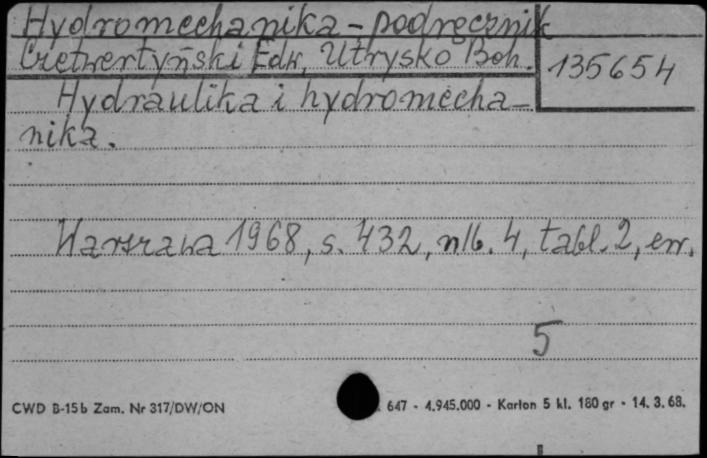 Hydromechanika - podręcznik
Czetwertyński Edw, Utrysko Boh.
135654
Hydraulika i hydromecha-
nika.
Warszawa 1968, s. 432, nlb. 4, tabl. 2, err.
5
CWD B-15b Zam. Nr 317/DW/ON
647 - 4.945.000 - Karton 5 kl. 180 gr - 14. 3. 68.